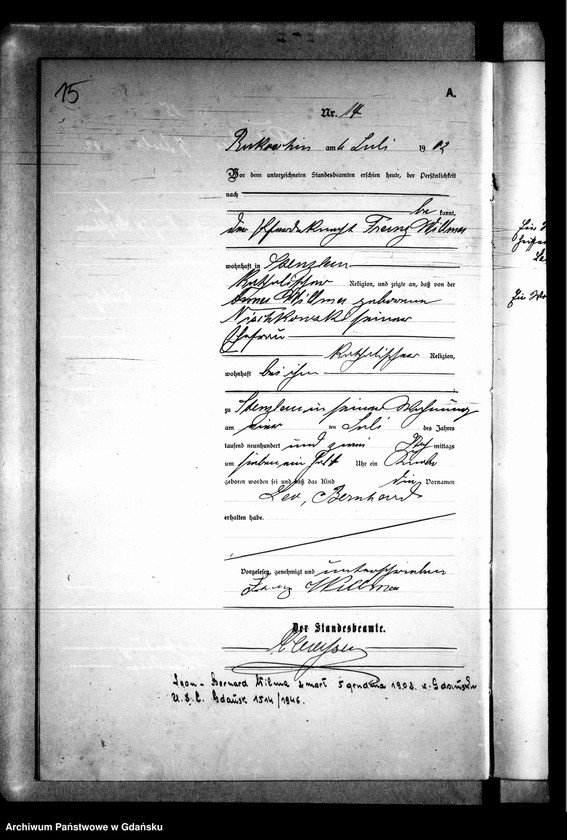 15
A.
Nr. 14
am 6 Juli 1902
Vor dem unterzeichneten Standesbeamten erschien heute, der Persönlichkeit
nach
be kannt,
der Pferdeknecht Franz Willma
wohnhaft in
katholischer Religion, und zeigte an, daß von der
Willma geborene
seiner
Ehefrau
katholischer Religion,
wohnhaft bei ihm
zu in seiner Wohnung
am vier ten Juli des Jahres
tausend neunhundert und zwei mittags
um sieben ein halb Uhr ein Knabe
geboren worden sei und daß das Kind die Vornamen
Leo, Bernhard
erhalten habe.
Vorgelesen, genehmigt und unterschrieben
Franz Willma
Der Standesbeamte.
Leon-Bernard Wilma zmarł 5 grudnia w Gdańsku
U.S.C. Gdańsk 1514/1946.
Archiwum Państwowe w Gdańsku